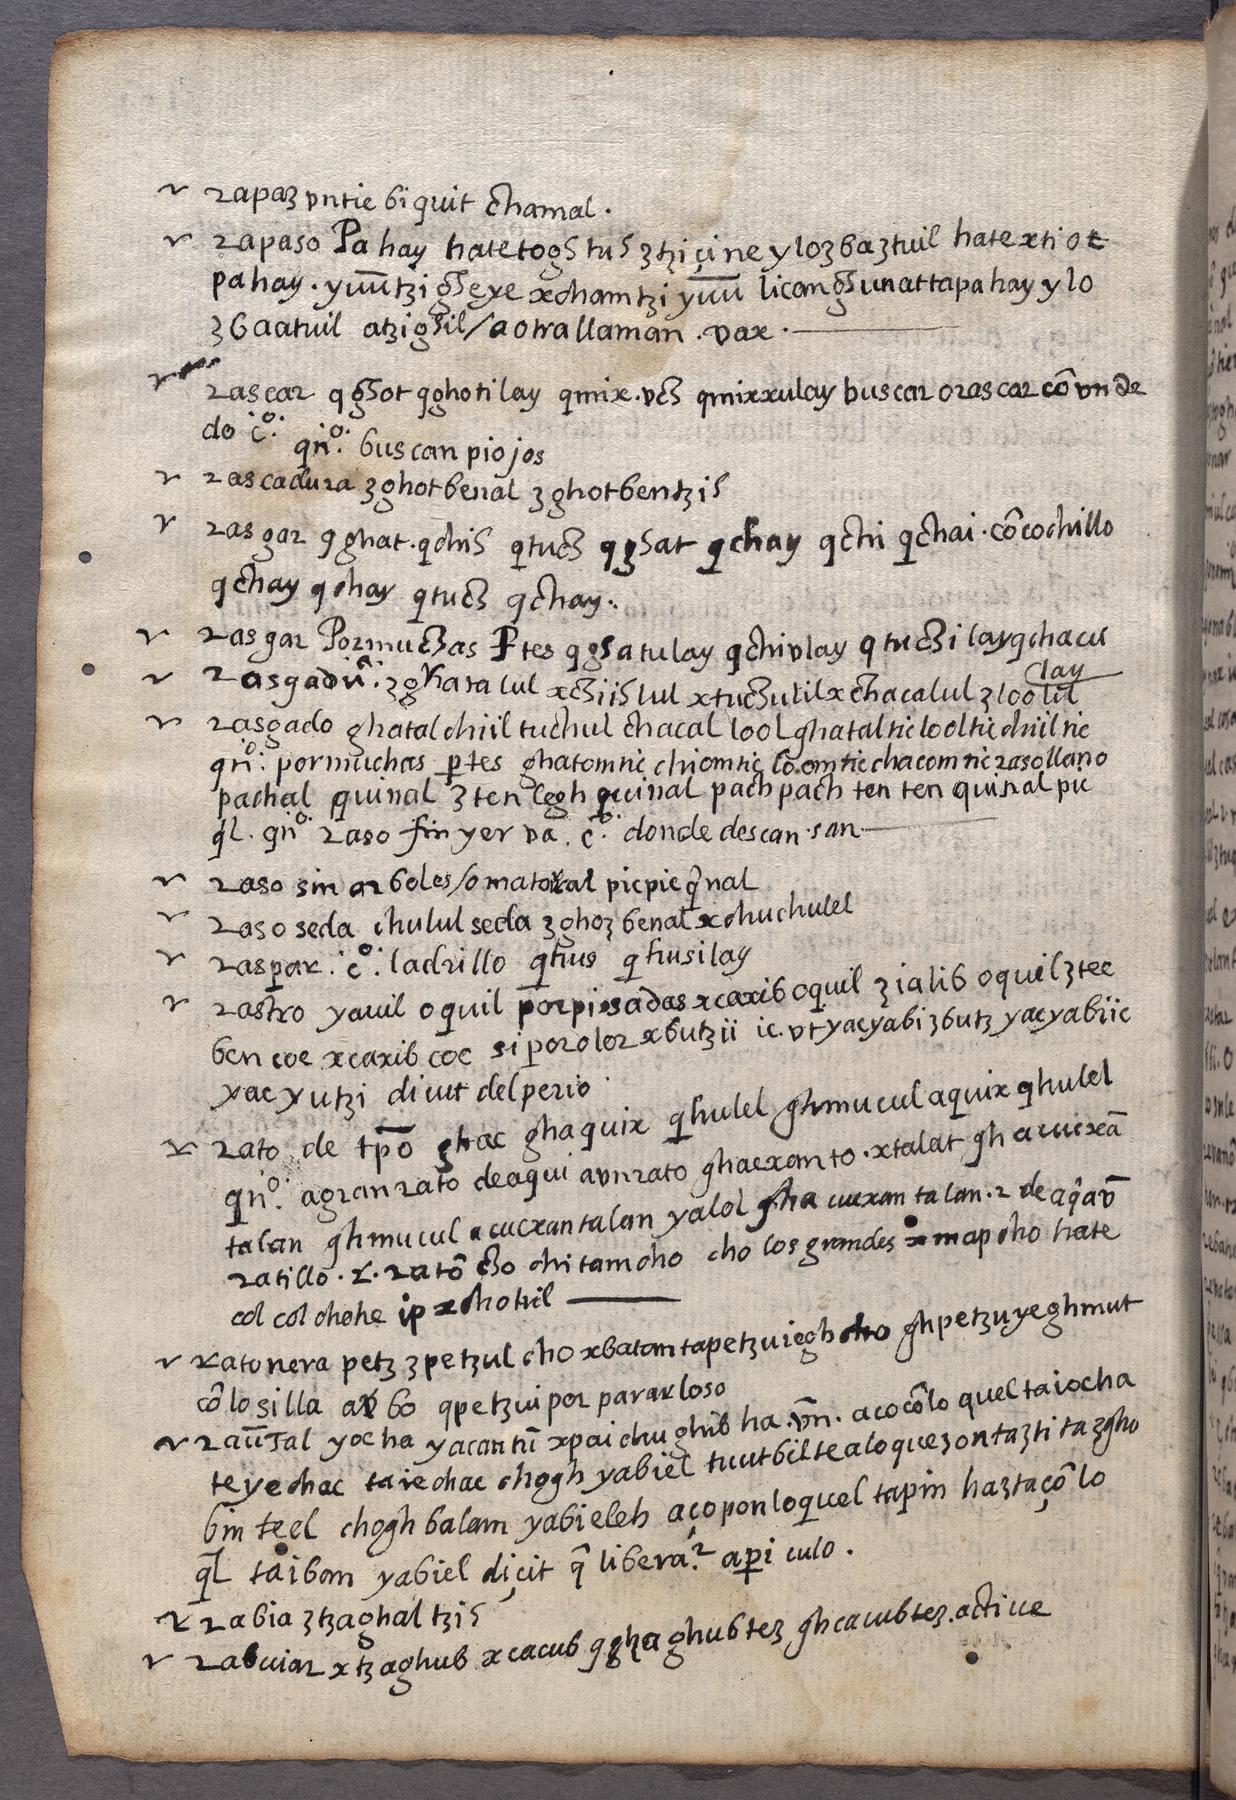 rapaz vntie biquit chamal.
rapaso Pa hay hatetoghtus ztzi çi ne y lozbaztuil hatextiot
pahay. yuutzi gheye xchamtzi yuu licanghunattapahay y lo
zbaatuil atzighil / a otrallaman. vax.
rascar qghot qghotilay qmix. vch qmixxulay buscar orascar cō vn de
do c.º qñ.º buscan piojos
rascadura zghotbenal zghotbentzis
rasgar qghat. qchis qtuch qghat qchay qchi qchai. cō cochillo
qchay qchay qtuch qchay.
rasgar Pormuchas Ptes qghatulay qchivlay qtuchilay qchacu
lay
rasgadu.ª zghatalul xchiislul xtuchulil xchacalul zloolil
rasgado ghatal chiil tuchul chacal lool ghataltic looltic chiiltic
qñ.º pormuchas ptes ghatomtic chiomtic loomtic chacomtic rasollano
pachal quinal zten legh quinal pach pach ten ten quinal pic
ql. qñ.º raso sin yerva. c.º donde descansan
raso sin arboles / o matorral picpic qnal
raso seda chulul seda zghozbenal xchuchulel
raspar. c.º ladrillo qhus qhusilay
rastro yauil oquil porpiesadas xcaxiboquil zialib oquil ztec
ben coc xcaxib coc si porolor xbutzii ic. vt yacyabi zbutz yacyabiic
yac yutzi dicut delperio
rato de tpō ghac ghaquix qhulel ghmucul aquix qhulel
qñ.º agranrato deaqui avnrato ghacxanto. xtalat gh a cucxā
talan ghmucul a cucxantalan yalol gha cucxan talan. r de aq̄ a v̄
ratillo. r. ratō cho chitamcho cho los grandes xmapcho hate
col col chohe ip xchotuil
ratonera petz zpetzul cho xbatamtapetzuiegh cho ghpetzuyeghmut
cō losilla arbo qpetzui por pararloso
raudal yocha yacantū xpaichughib ha. vn. acocōlo queltaiocha
teyechac taiechac chogh yabiel tuutbilte aloquezontazti tazgho
binteel chogh balam yabieleh açoponloquel tapin haztaçōlo
ql taibom yabiel diçit q̄ libera.r apiculo.
rabia ztzaghaltzis
rabuiar xtzaghub xcacub qghaghubtez ghcacubtez. actiue